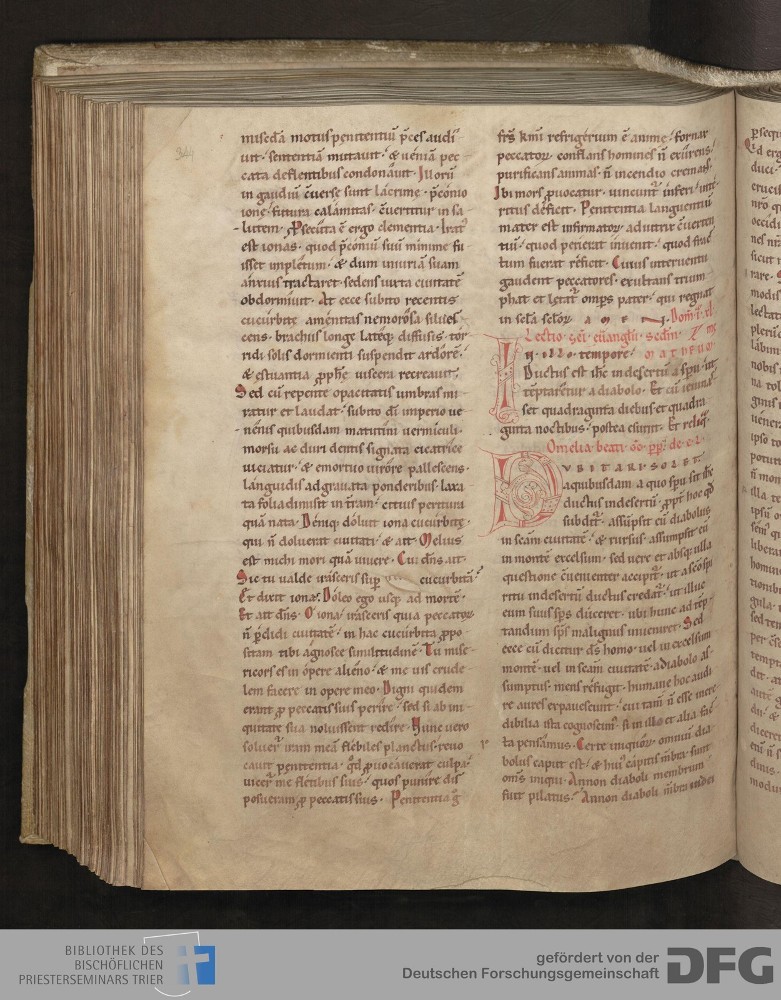 344
misc̄dā motus penitentiū p̄ces audi
uit· sententiā mutauit· & ueniā pec
cata deflentibus condonauit· Illorū
in gaudiū c̄uerse sunt lacrime· p̄conio
ione· futura calamitas· c̄uertitur in sa
lutem· Psecuta ē ergo clementia· Irat᷒
est ionas· quod p̄coniū suū minime fu
isset impletum· & dum iniuriā suam
anxius tractaret· sedens iuxta ciuitatē
obdormiuit· At ecce subito recentis
cucurbite amenitas nemorosa siluес
cens· brachiis longe lateq; diffusis· tor
ridi solis dormienti suspendit ardorē·
& estuantia pphe uiscera recreauit·
Sed cū repente opacitatis umbras mi
ratur et laudat· subito di imperio ue
nenis quibusdam matutini uermiculi·
morsu ac duri dentis signata cicatrice
uiciatur· & emortuo uirore pallescens·
languidis adgrauata ponderibus· laxa
ta folia dimisit in t̄ram· cituus peritura
quā nata· Deniq; doluit iona cucurbitę·
qui n̄ doluerat ciuitati· & ait· Melius
est michi mori quā uiuere· Cui dn̄s ait·
Sic tu ualde irasceris sup cucurbitā?
Et dixit ionas· Doleo ego usq; ad mortē·
Et ait dn̄s· O iona irasceris quia peccatoꝝ
n̄ p̄didi ciuitatē· in hac cucurbita ppo
sitam tibi agnosce similitudinē· Tu mise
ricors es in opere alieno· & me uis crude
lem facere in opere meo· Digni quidem
erant p peccatis suis perire· sed si ab ini
quitate sua noluissent redire· Hunc uero
soluer̄ iram meā flebiles planctus· reuo
cauit penitentia· qd puocauerat culpa·
uicer̄ me fletibus suis· quos punire dis
posueram p peccatis suis· Penitentia g̃
fr̄s kmi refrigerium ē anime· fornax
peccatoꝝ· conflans homines n̄ exurens·
purificans animas· n̄ incendio cremans·
Ibi mors puocatur· uincunt᷒ inferi· inte
ritus deficit· Penitentia languentiū
mater est infirmatoꝝ· adiutrix c̄uerten
tiū· quod perierat inuenit· quod frac
tum fuerat reficit· Cuius interuentu
gaudent peccatores· exultans trium
phat et letat᷒ omp̄s pater· qui regnat
in sc̄la sc̄loꝝ AMEN· Dom· I· xl
Lectio sc̄i euangl̄ii· scdm̄·
IN illo tempore· MATHEVM
Ductus est ih̄c in desertū a sp̄u· ut
tēptaretur a diabolo· Et cū ieiuna
set quadraginta diebus et quadra
ginta noctibus· postea esuriit· Et reliq̄·
Omelia beati GG· pp̄· de e· l·
DVBITARI SOLET·
a quibusdam· a quo sp̄u sit ih̄c
ductus in desertū· ppt̄ hoc qd
subdit᷒· assūpsit eū diabolus
in sc̄am ciuitatē· & rursus· assumpsit eū
in montē excelsum· sed uere et absq; ulla
questione c̄uenienter accipit᷒· ut a sc̄o sp̄
ritu in desertū ductus credat᷒· ut illuc
eum suus sp̄s duceret· ubi hunc ad tēp
tandum sp̄s malignus inueniret· Sed
ecce cū dicitur ds̄ homo· uel in excelsum
montē· uel in sc̄am ciuitatē· a diabolo as
sumptus· mens refugit· humane hoc audi
re aures expauescunt· cui tam̄ n̄ esse incre
dibilia ista cognoscim᷒· si in illo et alia fac
ta pensam᷒· Certe iniquoꝝ omniū dia
bolus caput est· & hui᷒ capitis mb̄ra· sunt
oms̄ iniqui· Annon diaboli membrum
fuit pilatus? Annon diaboli mb̄ra iudei
BIBLIOTHEK DES
BISCHÖFLICHEN
PRIESTERSEMINARS TRIER
gefördert von der
Deutschen Forschungsgemeinschaft
DFG